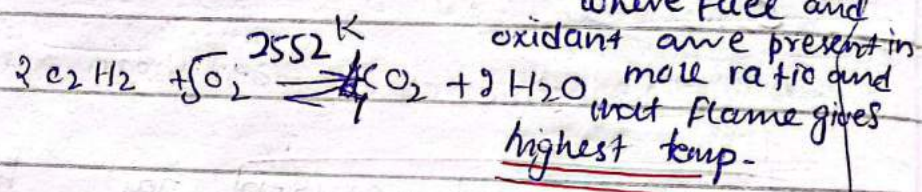 where fuel and
oxidant are present in
mole ratio and
that flame gives
highest temp-
2552 K
2 C2H2 + 5O2 ⇌ 4CO2 + 2 H2O